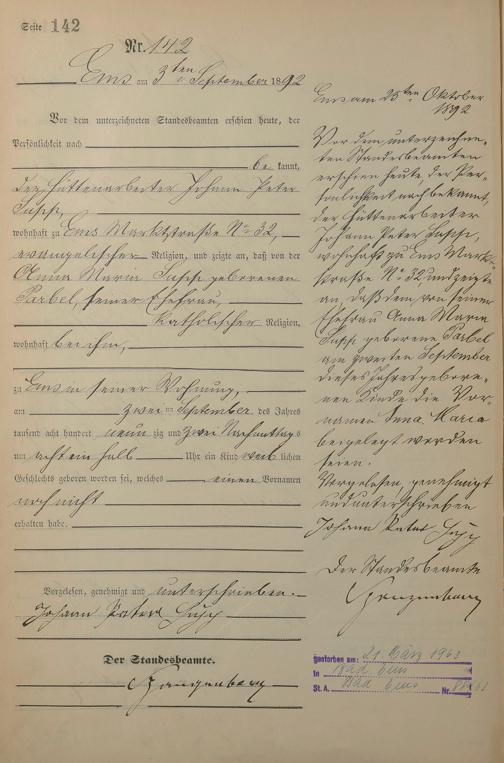 Seite 142
Nr. 142
Ems am 3ten September 1892
Vor dem unterzeichneten Standesbeamten erschien heute, der
Persönlichkeit nach
be kannt,
der Hüttenarbeiter Johann Peter
wohnhaft zu Ems Marktstraße No 32,
evangelischer Religion, und zeigte an, daß von der
Anna Maria geborenen
seiner Ehefrau,
katholischer Religion,
wohnhaft bei ihm,
zu Ems in seiner Wohnung,
am zwei ten September des Jahres
tausend acht hundert neun zig und zwei Nachmittags
um acht ein halb Uhr ein Kind weib lichen
Geschlechts geboren worden sei, welches einen Vornamen
noch nicht
erhalten habe.
Vorgelesen, genehmigt und unterschrieben.
Johann Peter
Der Standesbeamte.
Ems am 25ten Oktober
1892
Vor dem unterzeichne-
ten Standesbeamten
erschien heute der Per-
sönlichkeit nach bekannt,
der Hüttenarbeiter
Johann Peter
wohnhaft zu Ems Markt-
straße No 32 und zeigte
an, daß dem von seiner
Ehefrau Anna Maria
geborene
am zweiten September
dieses Jahres gebore-
nen Kinde die Vor-
namen Anna Maria
beigelegt worden
seien.
Vorgelesen, genehmigt
und unterschrieben
Johann Peter
Der Standesbeamte
gestorben am: 21. März 1963
in Bad Ems
St. A. Bad Ems Nr.